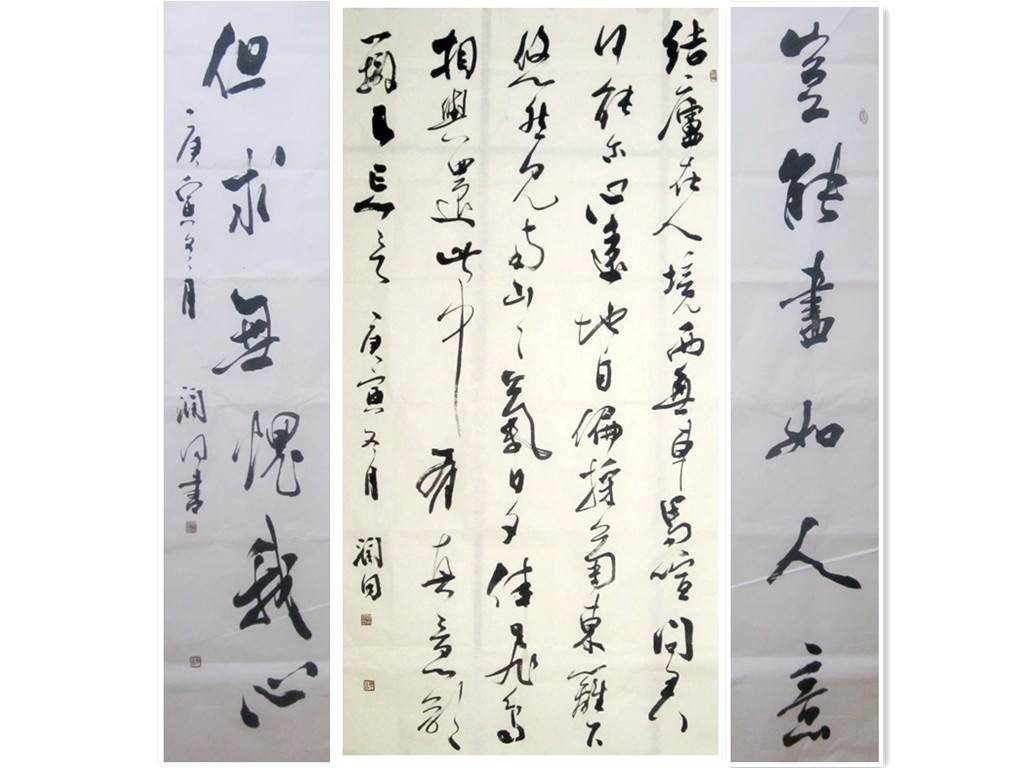 豈能盡如人意
結廬在人境而無車馬喧問君
何能尔心遠地自偏採菊東籬下
悠然見南山〻氣日夕佳飛鳥
相與還此中有真意欲
辨已忘言 庚寅冬月 潤同
但求無愧我心
庚寅冬月 潤同書